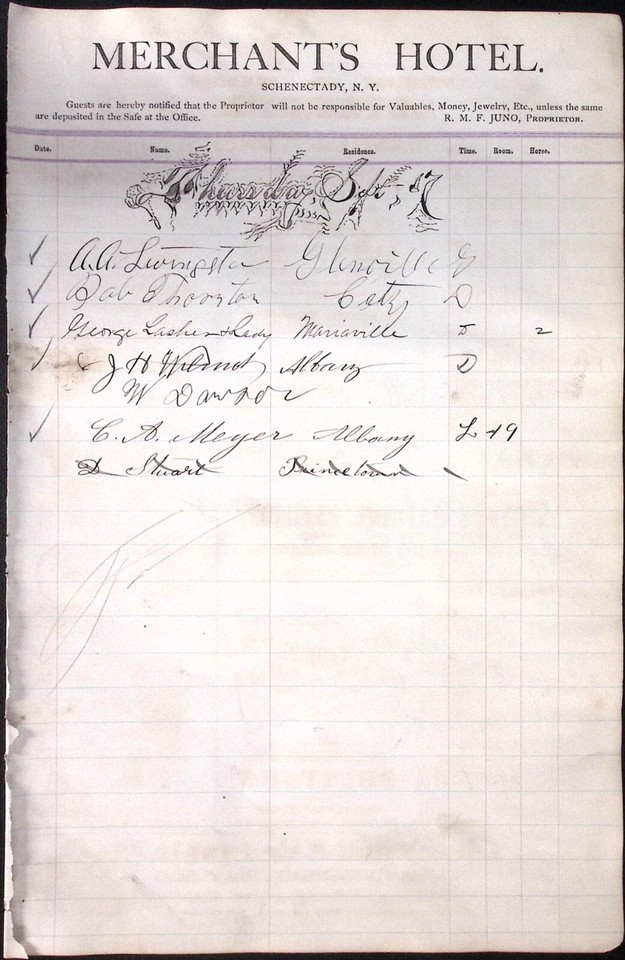 MERCHANT'S HOTEL.
SCHENECTADY, N. Y.
Guests are hereby notified that the Proprietor will not be responsible for Valuables, Money, Jewelry, Etc., unless the same
are deposited in the Safe at the Office. R. M. F. JUNO, PROPRIETOR.
Date. Name. Residence. Time. Room. Horse.
Thursday Sept. 7
A. A. Livingston Glenville
Bab Thornton City D
George Lasher & Lady Mariaville 2
& J H Albany D
W Dawson
C. A. Meyer Albany L 19
D Stuart Princetown